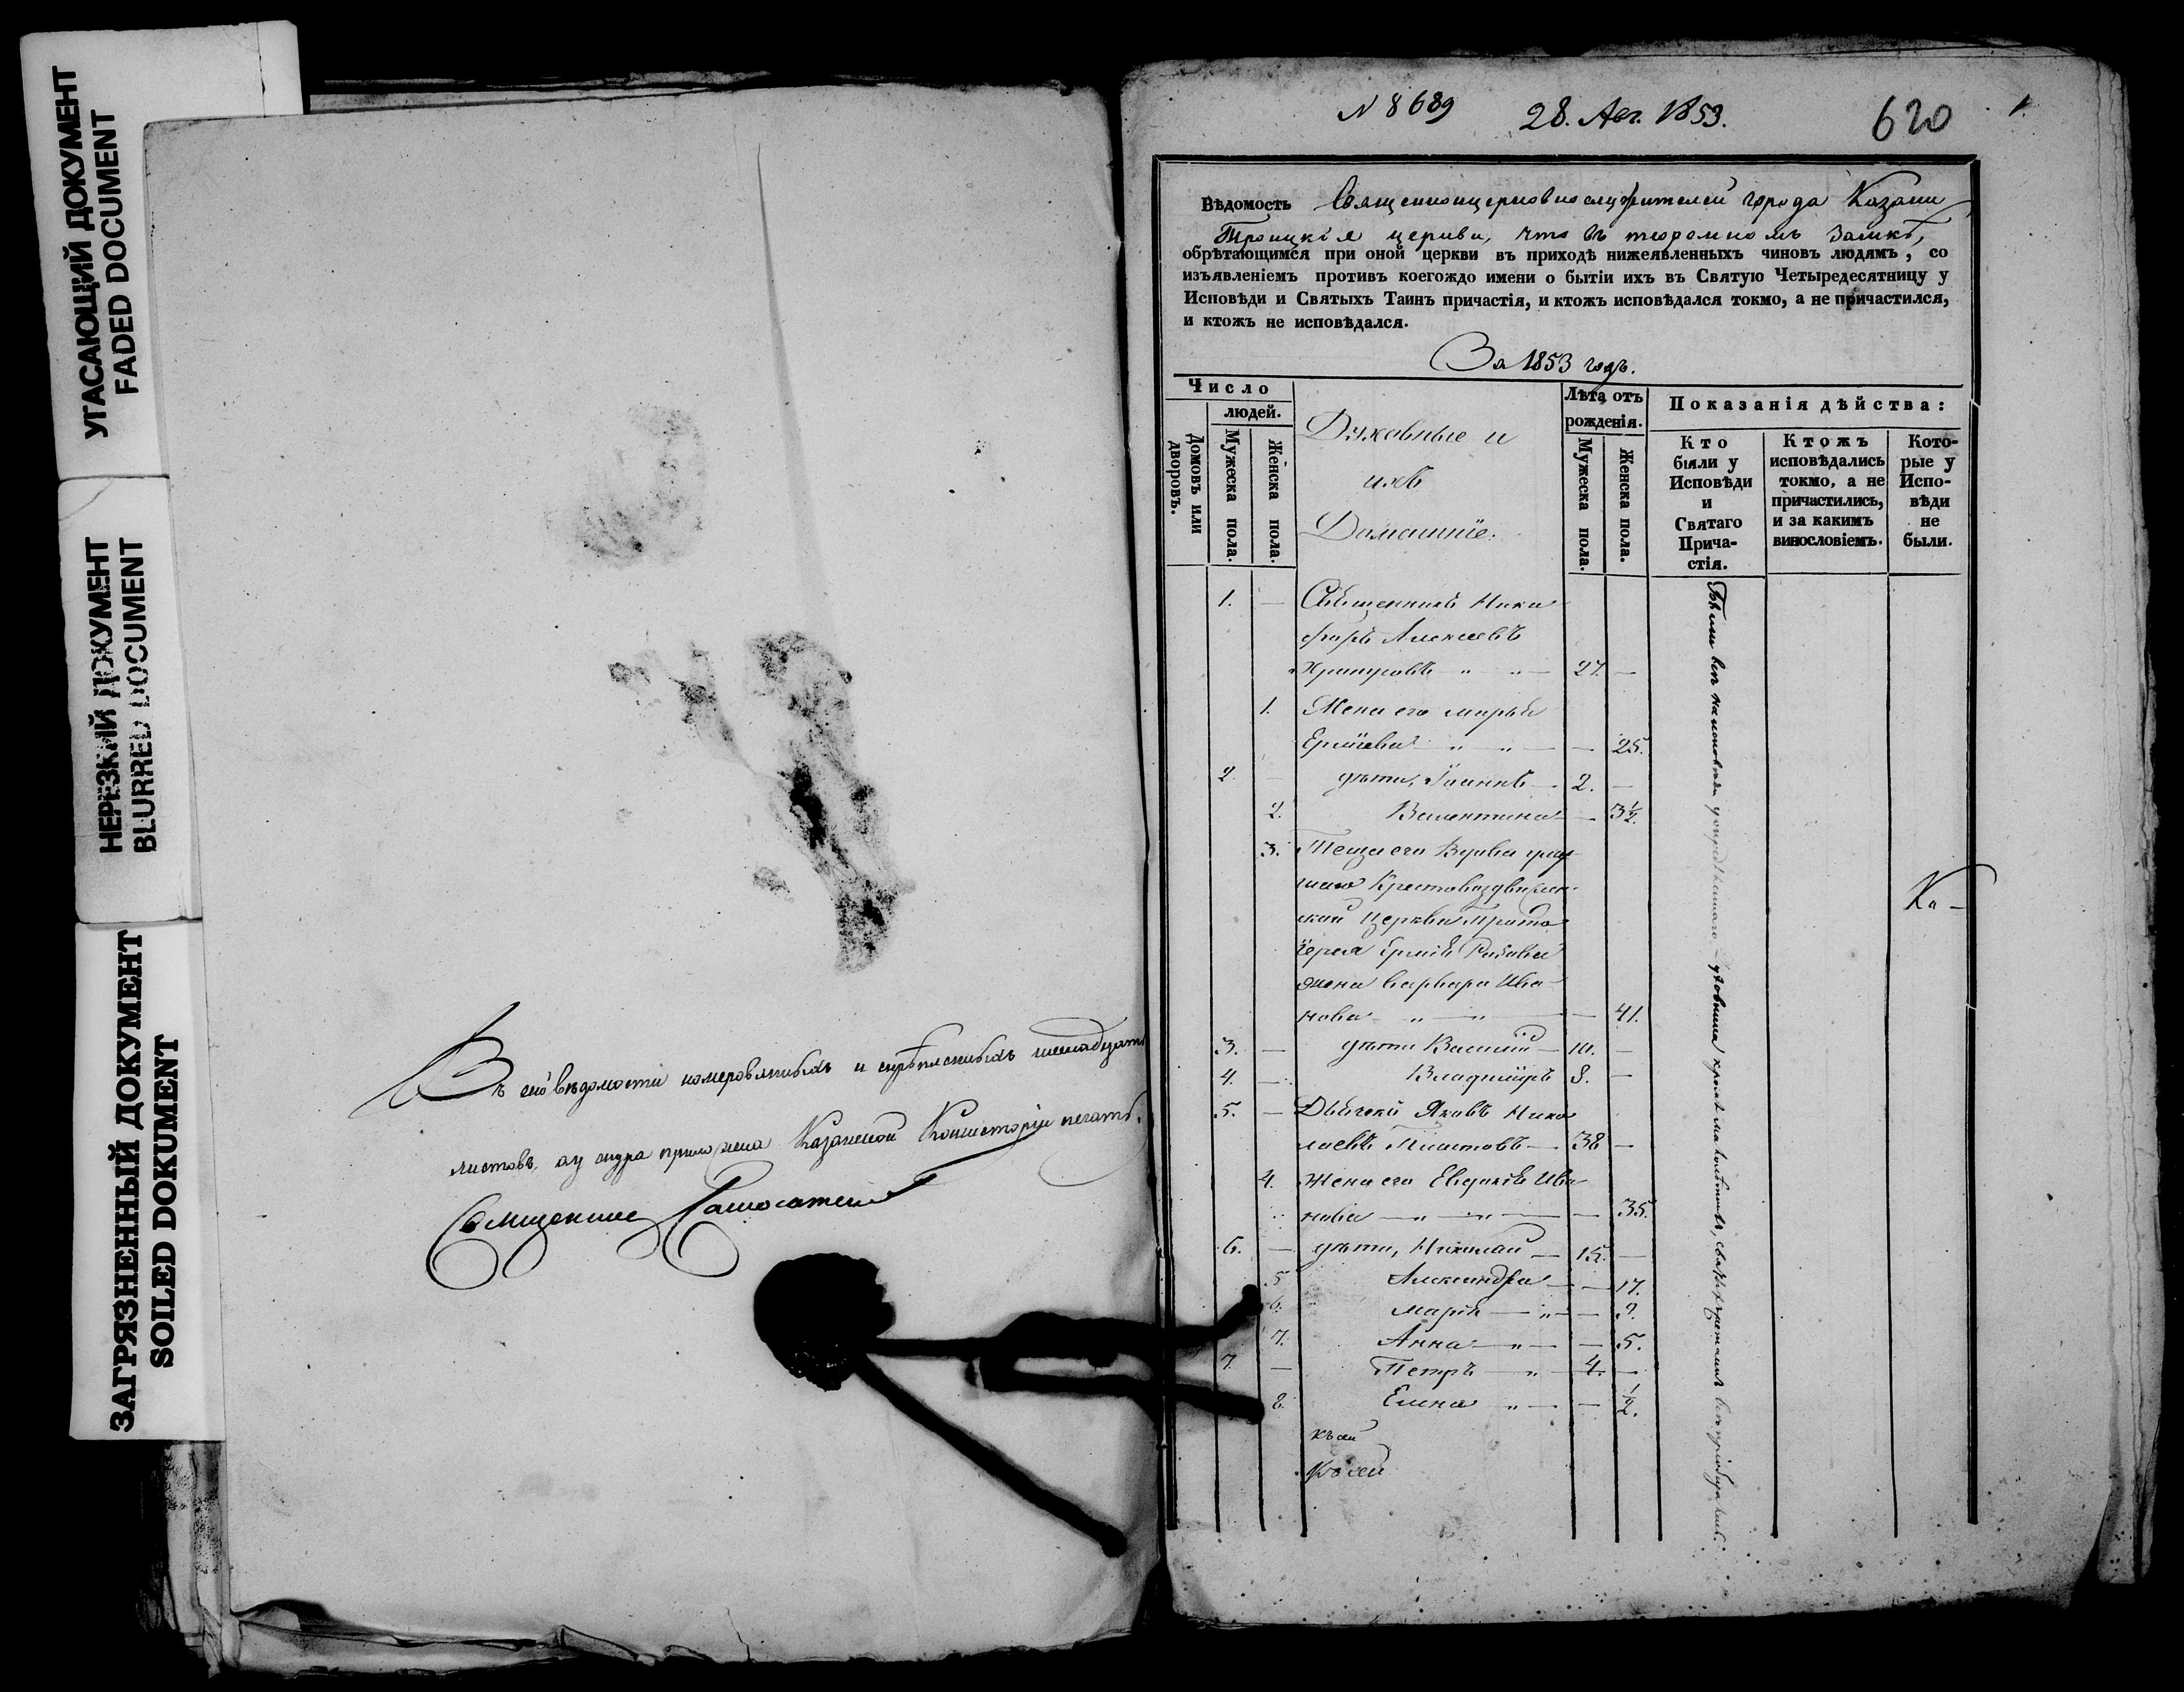 УГАСАЮЩИЙ ДОКУМЕНТ
FADED DOCUMENT
НЕРЕЗКИЙ ДОКУМЕНТ
BLURRED DOCUMENT
ЗАГРЯЗНЕННЫЙ ДОКУМЕНТ
SOILED DOKUMENT
Въ сей вѣдомости номерованныхъ и скрѣпленныхъ
листовъ, а у снура приложена Казанской Консисторіи печать.
Священникъ
N 8689 28. Авг. 1853. 620 1.
Вѣдомость Священноцерковнослужителей города Казани
Троицкія церкви, что въ тюремномъ замкѣ,
обрѣтающимся при оной церкви въ приходѣ нижеявленныхъ чиновъ людямъ, со
изъявленіемъ противъ коегождо имени о бытіи ихъ въ Святую Четыредесятницу у
Исповѣди и Святыхъ Таинъ причастія, и ктожъ исповѣдался токмо, а не причастился,
и ктожъ не исповѣдался.
За 1853 годъ.
Число
людей.
Домовъ или
дворовъ.
Мужеска пола.
Женска пола.
Духовные и
ихъ
Домашніе.
Лѣта отъ
рожденія.
Мужеска пола.
Женска пола.
Показанія дѣйства:
Кто
были у
Исповѣди
и
Святаго
Прича-
стія.
Ктожъ
исповѣдались
токмо, а не
причастились,
и за какимъ
винословіемъ.
Кото-
рые у
Испо-
вѣди
не
были.
1. — Священникъ Ники
форъ Алексеевъ
" " — 27. —
1. Жена его Марья
" " — — 25.
2. — дѣти, Іоаннъ — 2. —
2. Валентина — 3½.
3. Теща его Вдова
Крестовоздвижен-
ской Церкви Прото
іерея
жена Варвара Ива-
нова " " — — 41.
3. — дѣти Василій — 10. —
4. — Владиміръ 8. —
5. — Дьячекъ Яковъ Нико
лаевъ — 38 —
4. Жена его Евдокія Ива-
нова — " — " — — 35.
6. — дѣти, Николай — 15. —
5 Александра — — 17.
6. Марія — " — — 9.
7. Анна — " — — 5.
7. — Петръ — " — 4. —
8. Елена " — — ½.
Ка-